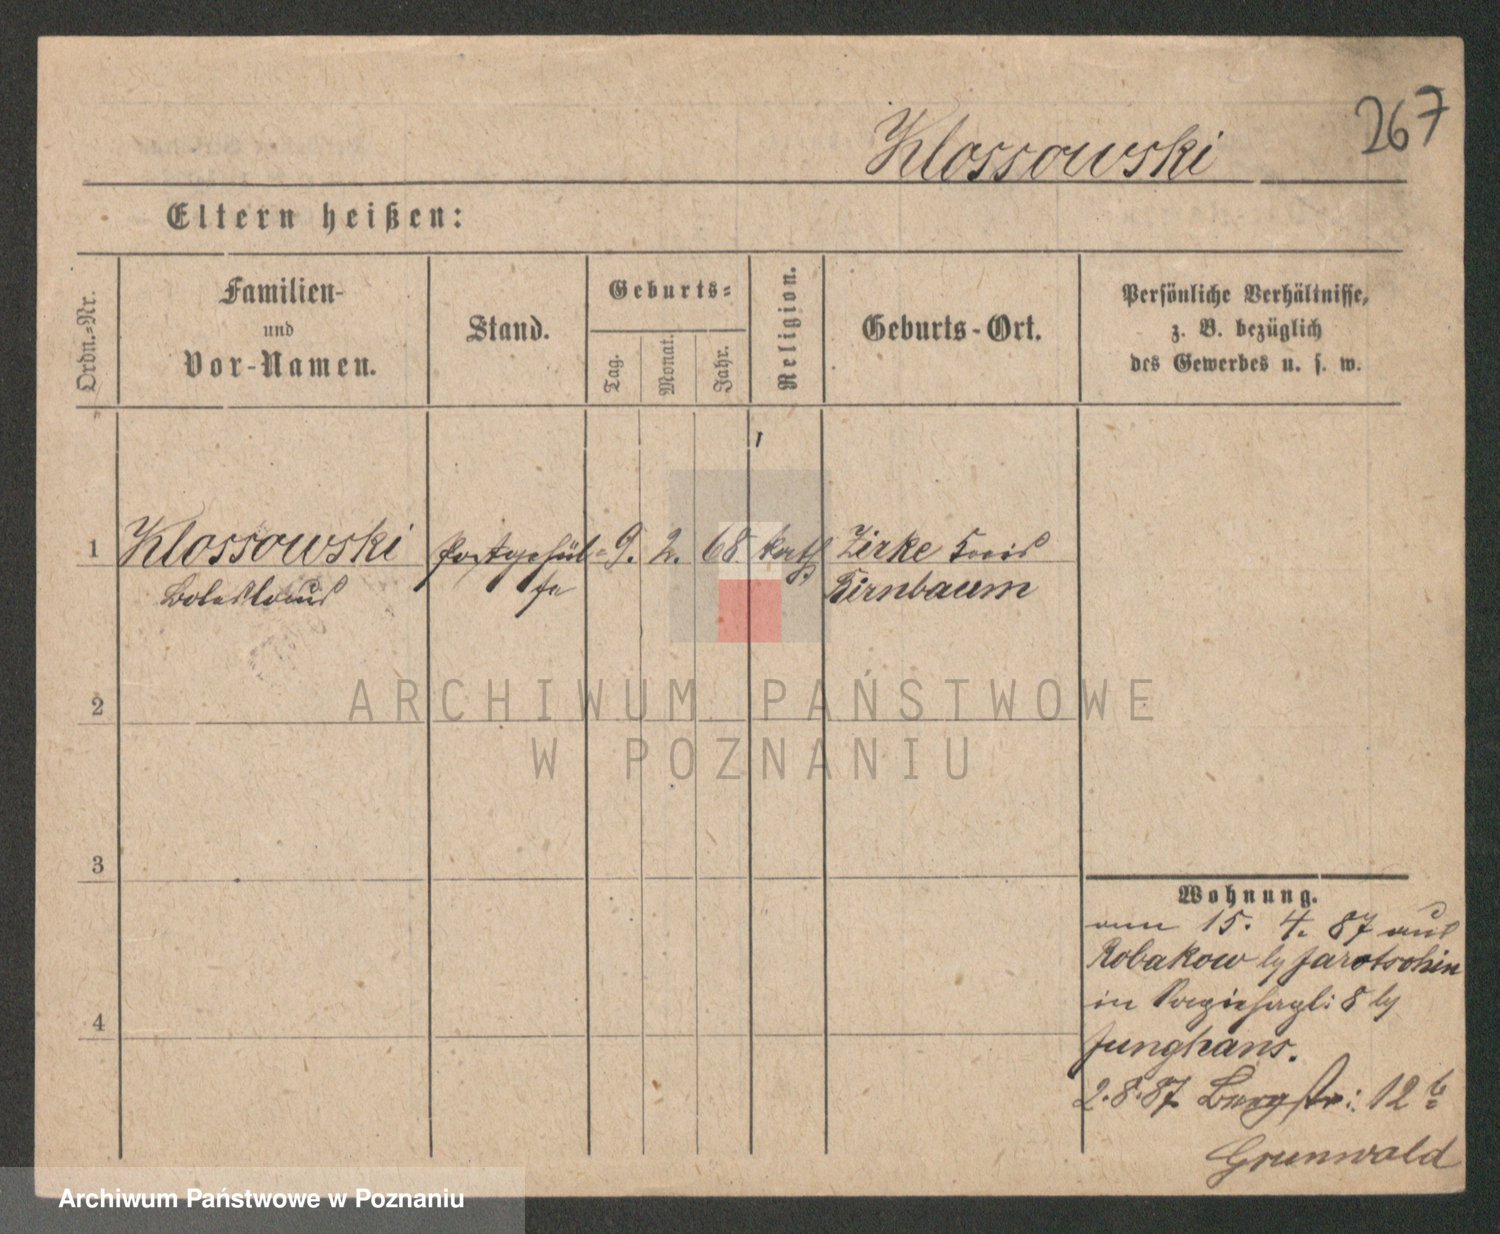 267
Klossowski
Eltern heißen:
Ordn.-Nr.
Familien-
und
Vor-Namen.
Stand.
Geburts-
Tag.
Monat.
Jahr.
Religion.
Geburts-Ort.
Persönliche Verhältnisse,
z. B. bezüglich
des Gewerbes u. s. w.
1 Klossowski Postgehül- 9. 2. 68. kath Zirke Kreis
Boleslaus fe Birnbaum
2
3
4
Wohnung.
am 15. 4. 87 aus
Robakow by Jarotschin
in 8 by
Junghans.
2.8.87 Bergstr: 12 b
Grunwald
ARCHIWUM PAŃSTWOWE
W POZNANIU
Archiwum Państwowe w Poznaniu